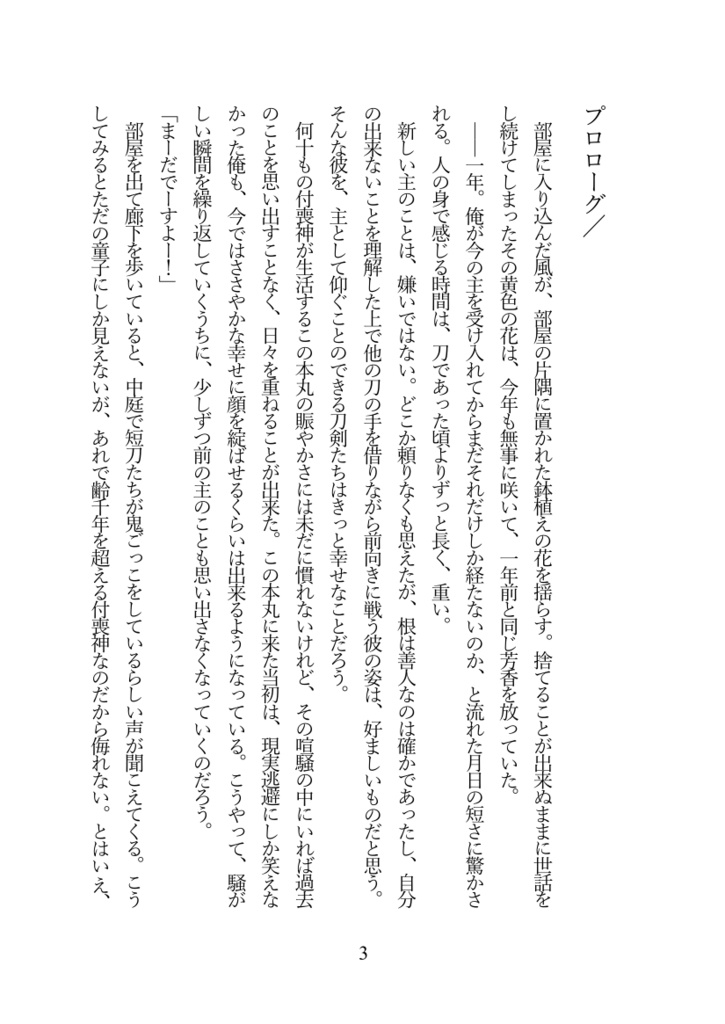 プロローグ／
　部屋に入り込んだ風が、部屋の片隅に置かれた鉢植えの花を揺らす。捨てることが出来ぬままに世話を
し続けてしまったその黄色の花は、今年も無事に咲いて、一年前と同じ芳香を放っていた。
　――一年。俺が今の主を受け入れてからまだそれだけしか経たないのか、と流れた月日の短さに驚かさ
れる。人の身で感じる時間は、刀であった頃よりずっと長く、重い。
　新しい主のことは、嫌いではない。どこか頼りなくも思えたが、根は善人なのは確かであったし、自分
の出来ないことを理解した上で他の刀の手を借りながら前向きに戦う彼の姿は、好ましいものだと思う。
そんな彼を、主として仰ぐことのできる刀剣たちはきっと幸せなことだろう。
　何十もの付喪神が生活するこの本丸の賑やかさには未だに慣れないけれど、その喧騒の中にいれば過去
のことを思い出すことなく、日々を重ねることが出来た。この本丸に来た当初は、現実逃避にしか笑えな
かった俺も、今ではささやかな幸せに顔を綻ばせるくらいは出来るようになっている。こうやって、騒が
しい瞬間を繰り返していくうちに、少しずつ前の主のことも思い出さなくなっていくのだろう。
「まーだでーすよー！」
　部屋を出て廊下を歩いていると、中庭で短刀たちが鬼ごっこをしているらしい声が聞こえてくる。こう
してみるとただの童子にしか見えないが、あれで齢千年を超える付喪神なのだから侮れない。とはいえ、
3